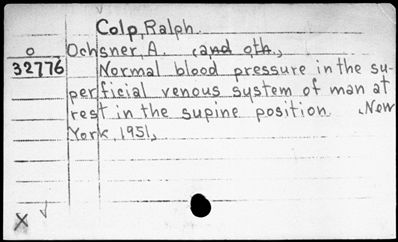 Colp, Ralph.
o Ochsner, A. (and oth.,
32776 Normal blood pressure in the su-
perficial venous system of man at
rest in the supine position. New
York 1951,
X √